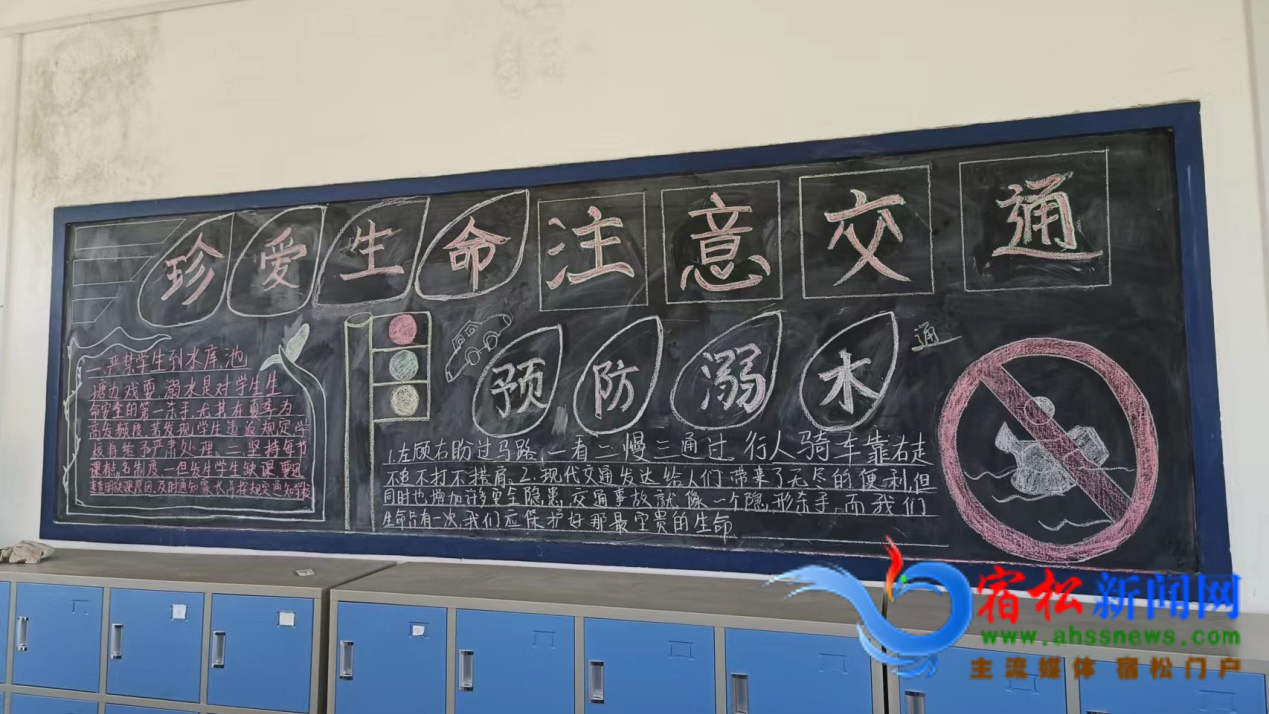 珍爱生命注意交通
预防溺水
通
一.严禁学生到水库池
塘边戏耍.溺水是对学生生
命安全的第一杀手,尤其在夏季为
高发频度.若发现学生违返规定学
校将给予严肃处理.二.坚持每节
课点名制度.一但发生学生缺课
缺课原因,及时通知家长
1.左顾右盼过马路,一看二慢三通过,行人骑车靠右走
不追不打不搭肩.2.现代交通发达给人们带来了无尽的便利但
同时也增加许多安全隐患.交通事故就像一个隐形杀手,而我们
生命只有一次,我们应保护好那最宝贵的生命
宿松新闻网
www.ahssnews.com
主流媒体 宿松门户